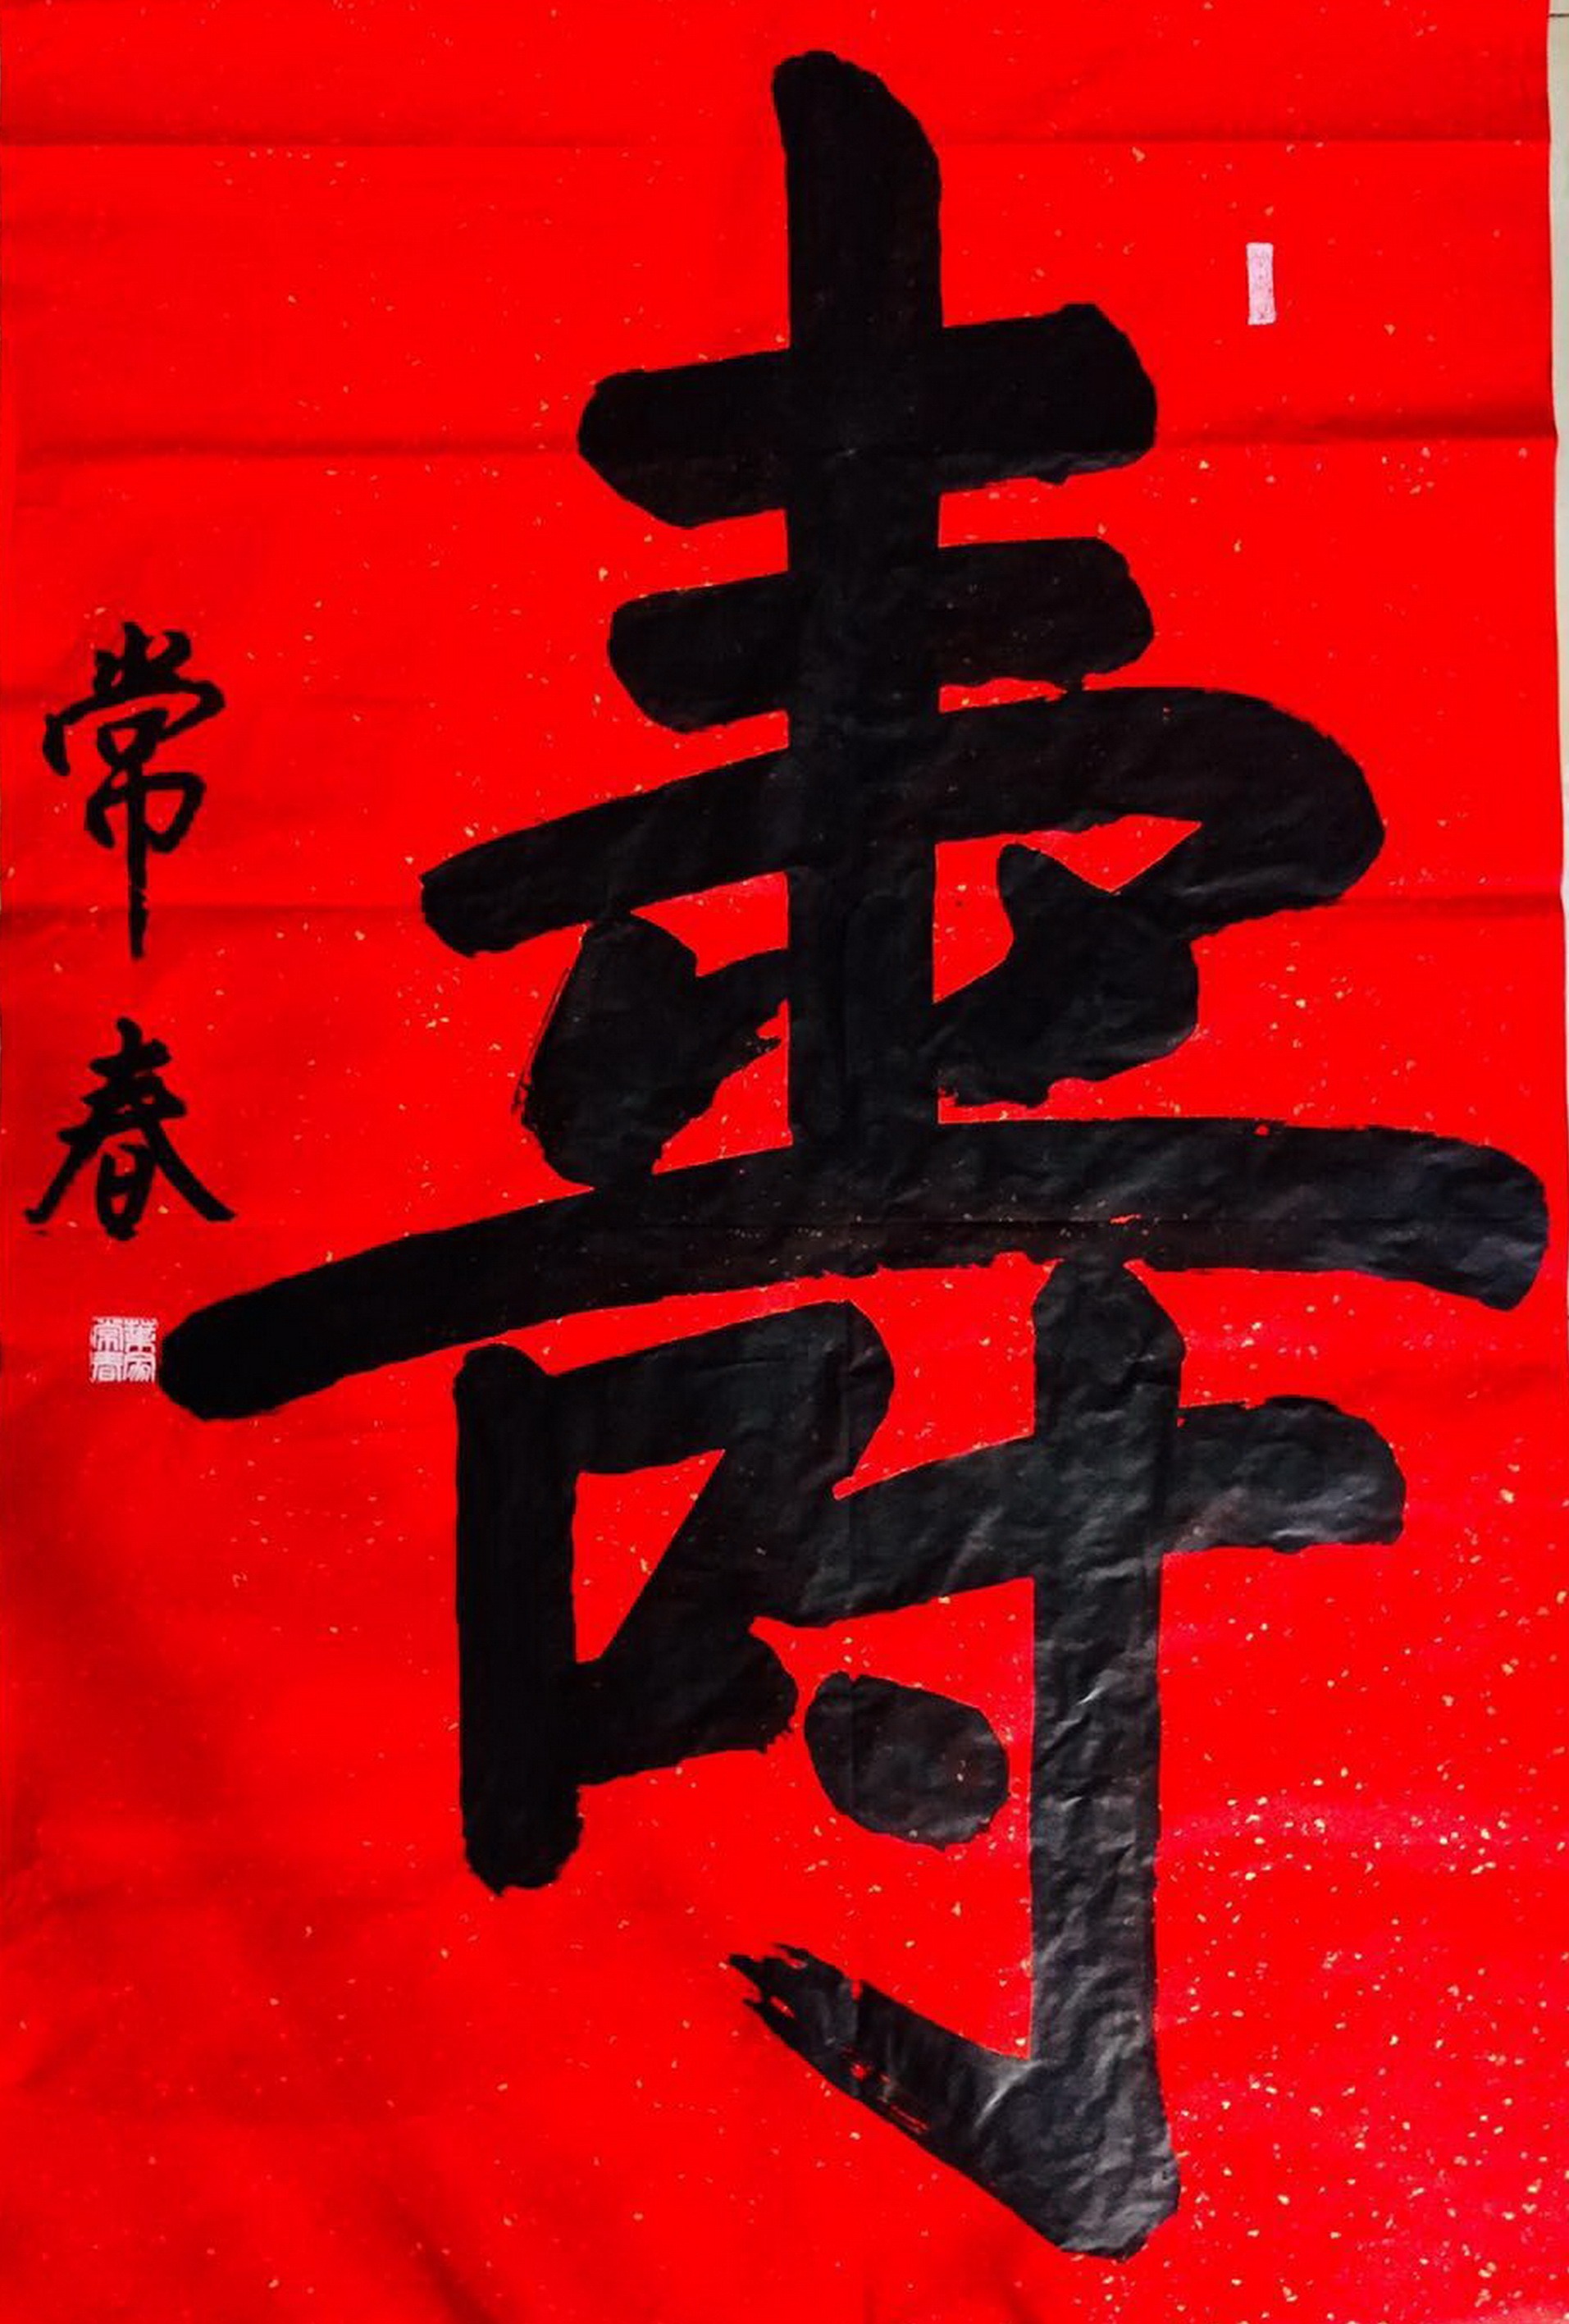 壽
常春